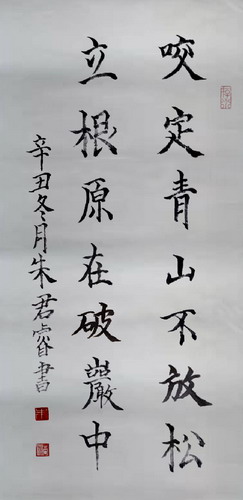 咬定青山不放松
立根原在破巖中
辛丑冬月朱君睿書